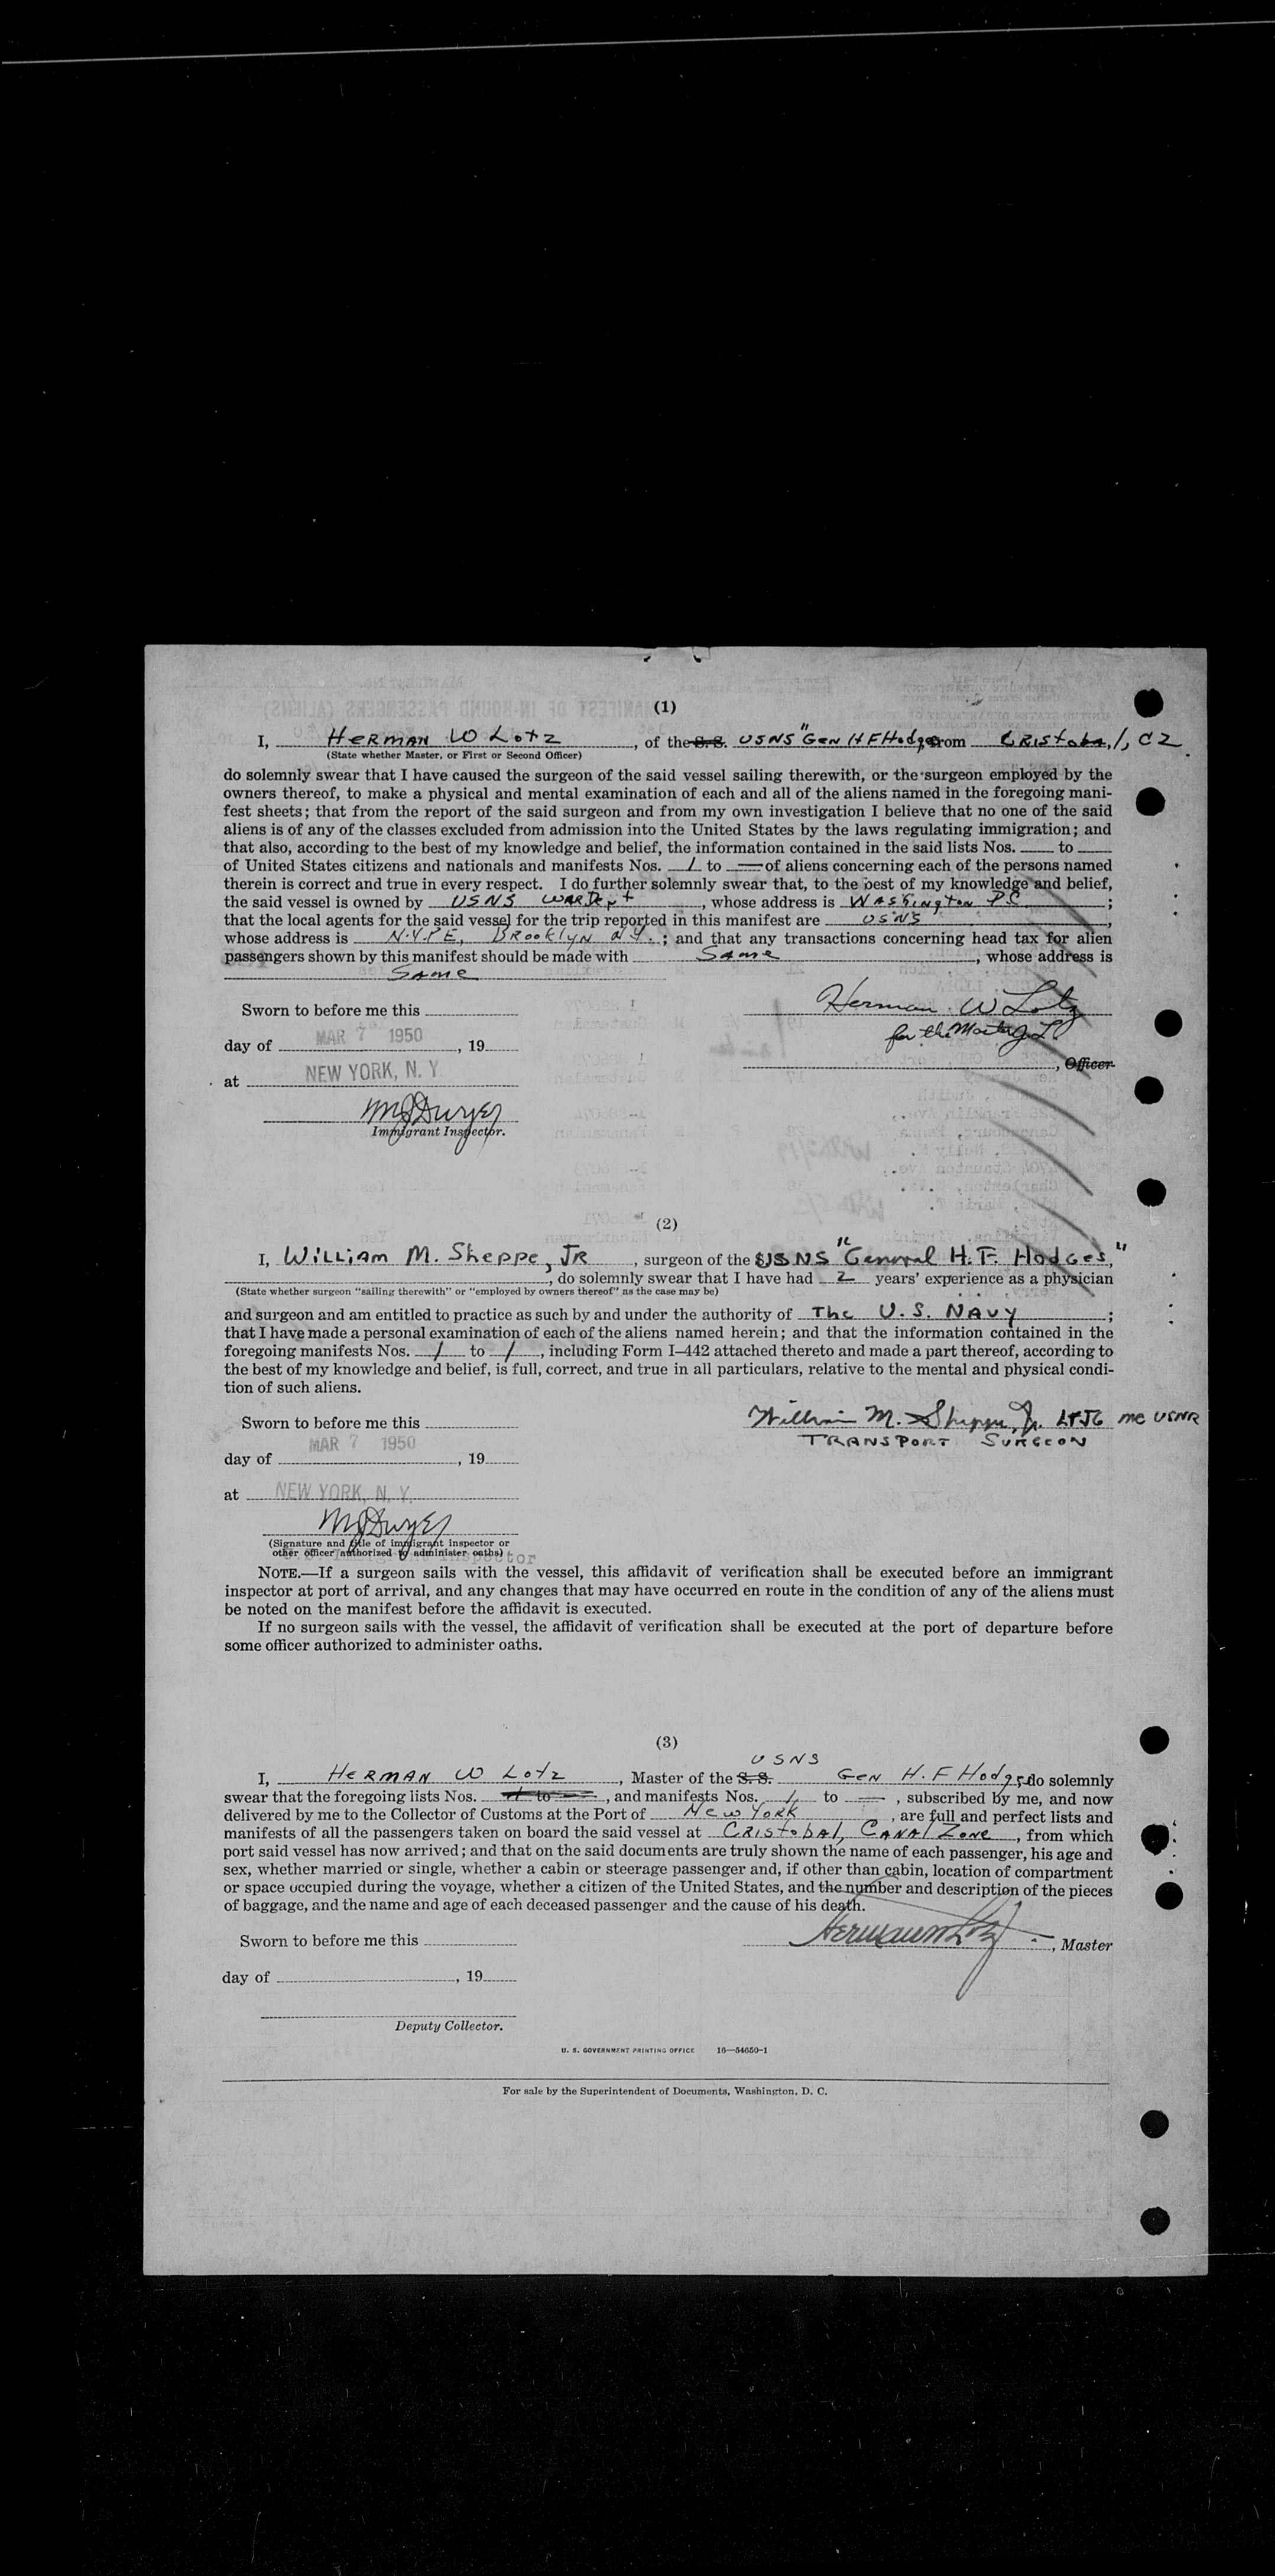 (1)
I, HERMAN W Lotz, of the S.S. USNS "Gen H F Hodges from CRIStobal, CZ
(State whether Master, or First or Second Officer)
do solemnly swear that I have caused the surgeon of the said vessel sailing therewith, or the surgeon employed by the
owners thereof, to make a physical and mental examination of each and all of the aliens named in the foregoing mani-
fest sheets; that from the report of the said surgeon and from my own investigation I believe that no one of the said
aliens is of any of the classes excluded from admission into the United States by the laws regulating immigration; and
that also, according to the best of my knowledge and belief, the information contained in the said lists Nos. to
of United States citizens and nationals and manifests Nos. 1 to — of aliens concerning each of the persons named
therein is correct and true in every respect. I do further solemnly swear that, to the best of my knowledge and belief,
the said vessel is owned by USNS WAR Dept, whose address is WASHington DC;
that the local agents for the said vessel for the trip reported in this manifest are USNS,
whose address is N.Y.P.E, BRooklyn NY.; and that any transactions concerning head tax for alien
passengers shown by this manifest should be made with Same, whose address is
Same
Sworn to before me this
Herman W Lotz
for the Master
day of MAR 7 1950, 19
, Officer
at NEW YORK, N. Y.
MJDwyer
Immigrant Inspector.
(2)
I, WILLIAM M. Sheppe, JR, surgeon of the USNS "General H.F. Hodges,"
, do solemnly swear that I have had 2 years' experience as a physician
(State whether surgeon "sailing therewith" or "employed by owners thereof" as the case may be)
and surgeon and am entitled to practice as such by and under the authority of The U.S. NAVY;
that I have made a personal examination of each of the aliens named herein; and that the information contained in the
foregoing manifests Nos. 1 to 1, including Form I-442 attached thereto and made a part thereof, according to
the best of my knowledge and belief, is full, correct, and true in all particulars, relative to the mental and physical condi-
tion of such aliens.
Sworn to before me this
William M. Sheppe, Jr. LTJG MC USNR
TRANSPORT SURGEON
day of MAR 7 1950, 19
at NEW YORK, N. Y.
MJDwyer
(Signature and title of immigrant inspector or
other officer authorized to administer oaths)
NOTE.—If a surgeon sails with the vessel, this affidavit of verification shall be executed before an immigrant
inspector at port of arrival, and any changes that may have occurred en route in the condition of any of the aliens must
be noted on the manifest before the affidavit is executed.
If no surgeon sails with the vessel, the affidavit of verification shall be executed at the port of departure before
some officer authorized to administer oaths.
(3)
USNS
I, HERMAN W Lotz, Master of the S.S. Gen H.F Hodges, do solemnly
swear that the foregoing lists Nos. 1 to —, and manifests Nos. 1 to —, subscribed by me, and now
delivered by me to the Collector of Customs at the Port of New York, are full and perfect lists and
manifests of all the passengers taken on board the said vessel at CRIStobAl, CANAl Zone, from which
port said vessel has now arrived; and that on the said documents are truly shown the name of each passenger, his age and
sex, whether married or single, whether a cabin or steerage passenger and, if other than cabin, location of compartment
or space occupied during the voyage, whether a citizen of the United States, and the number and description of the pieces
of baggage, and the name and age of each deceased passenger and the cause of his death.
Sworn to before me this
Herman W Lotz, Master
day of , 19
Deputy Collector.
U. S. GOVERNMENT PRINTING OFFICE 16—54650-1
For sale by the Superintendent of Documents, Washington, D. C.